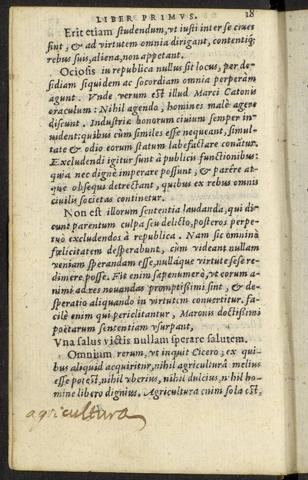 LIBER PRIMVS. 18
Erit etiam studendum, vt iusti inter se ciues
sint, & ad virtutem omnia dirigant, contentiq;
rebus suis, aliena, non appetant.
Ociosis in republica nullus sit locus, per de-
sidiam siquidem ac socordiam omnia perperàm
agunt. Vnde verum est illud Marci Catonis
oraculum: Nihil agendo, homines malè agere
discunt. Industriæ honorum ciuium semper in-
uident: quibus cùm similes esse nequeant, simul-
tate & odio eorum statum labefactare conãtur.
Excludendi igitur sunt à publicis functionibus:
quia nec dignè imperare possunt, & parére at-
que obsequi detrectant, quibus ex rebus omnis
ciuilis societas continetur.
Non est illorum sententia laudanda, qui di-
cunt parentum culpa seu delicto, posteros perpe-
tuò excludendos à republica. Nam sic omninò
fœlicitatem desperabunt, cùm videant nullam
veniam sperandam esse, nulláque virtute sese re-
dimere posse. Fit enim sæpenumerò, vt eorum a-
nimi ad res nouandas promptissimi sint, & de-
speratio aliquando in virtutem conuertitur. fa-
cilè enim qui periclitantur, Maronis doctissimi
poëtarum sententiam vsurpant,
Vna salus victis nullam sperare salutem.
Omnium rerum, vt inquit Cicero, ex qui-
bus aliquid acquiritur, nihil agricultura melius
esse potest, nihil vberius, nihil dulcius, nihil ho-
mine libero dignius. Agricultura enim sola est,
agricultura